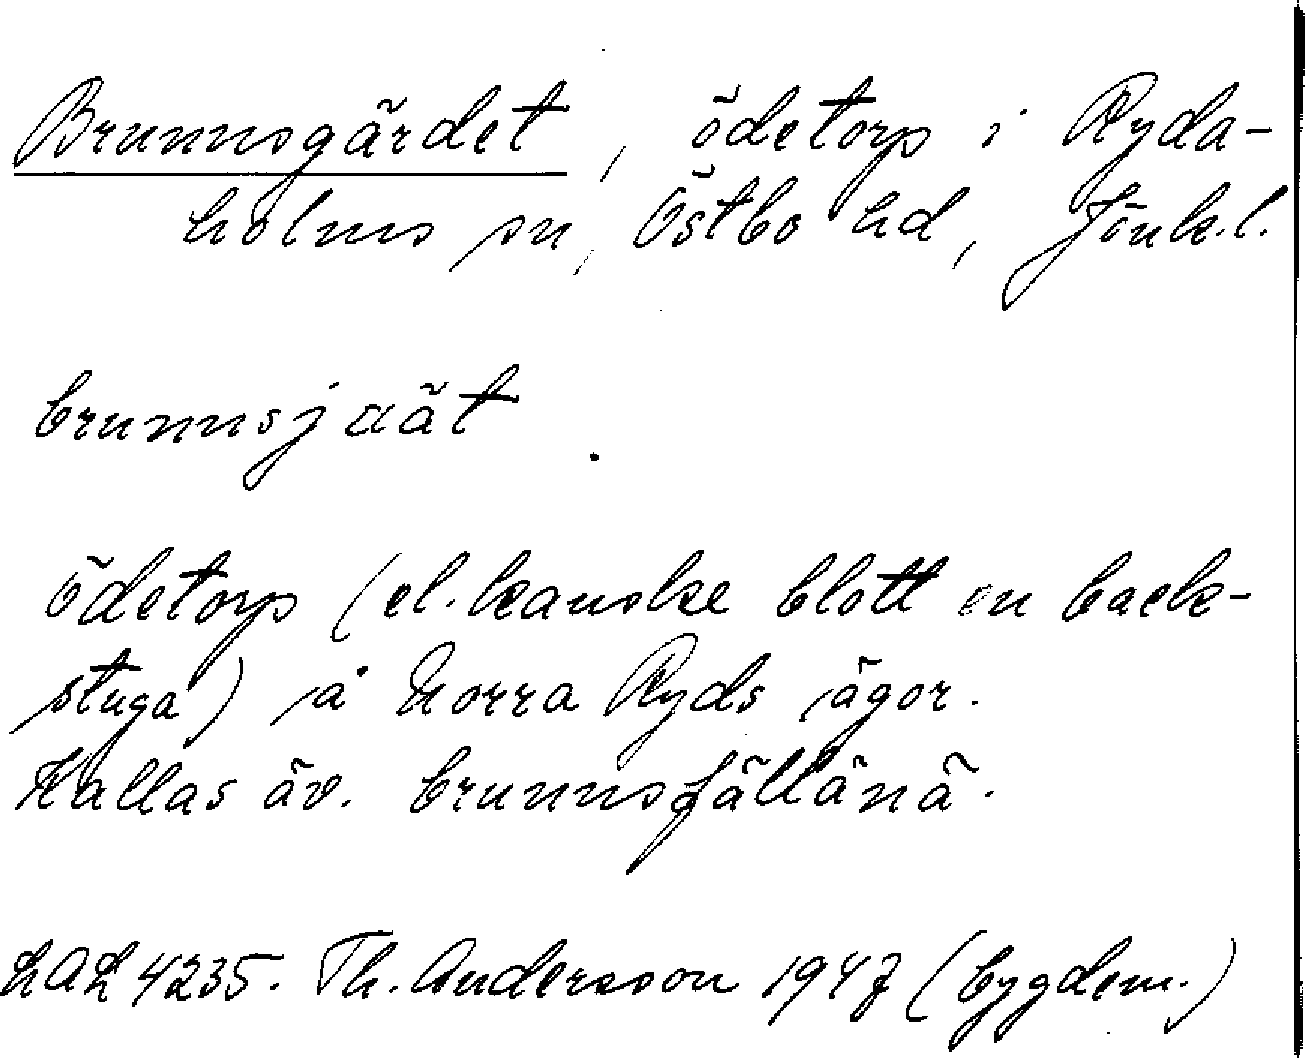 Brunnsgärdet, ödetorp i Ryda-
holms sn, Östbo hd, Jönk.l.
brunnsjäät
ödetorp (el. kanske blott en back-
stuga) å Norra Ryds ägor.
Kallas äv. brunnsfällänä.
LAL 4235. Th. Andersson 1947 (bygdem.)